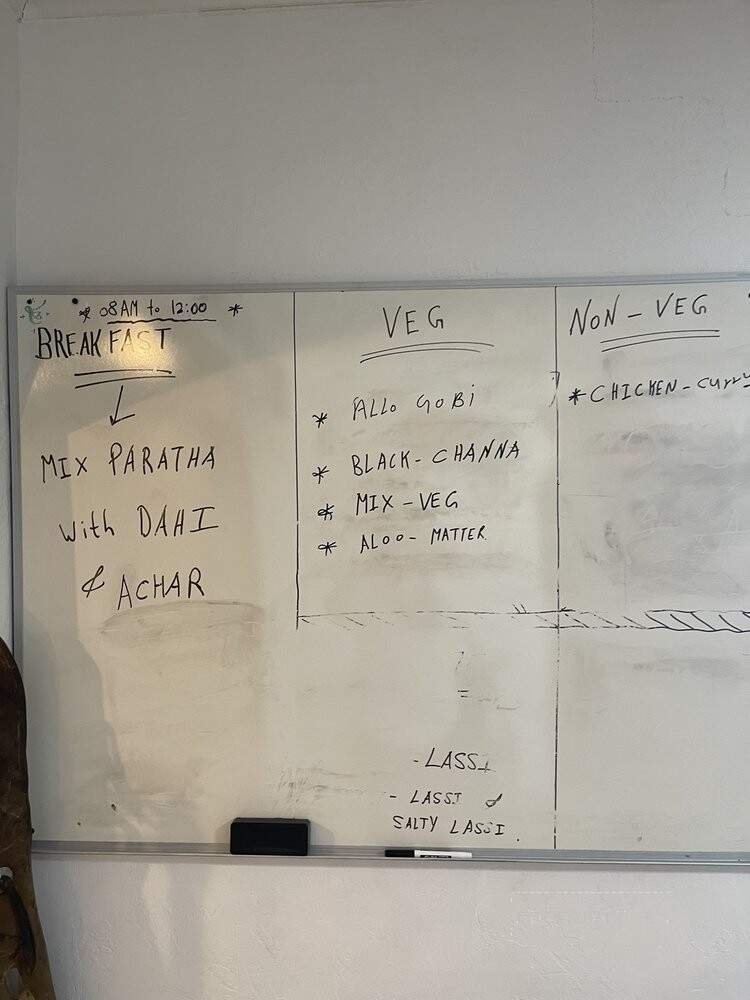 * 08AM to 12:00 *
BREAKFAST
MIX PARATHA
with DAHI
& ACHAR
VEG
* ALLO GOBI
* BLACK-CHANNA
* MIX-VEG
* ALOO-MATTER
- LASSI
- LASSI &
SALTY LASSI.
NON-VEG
* CHICKEN-curry